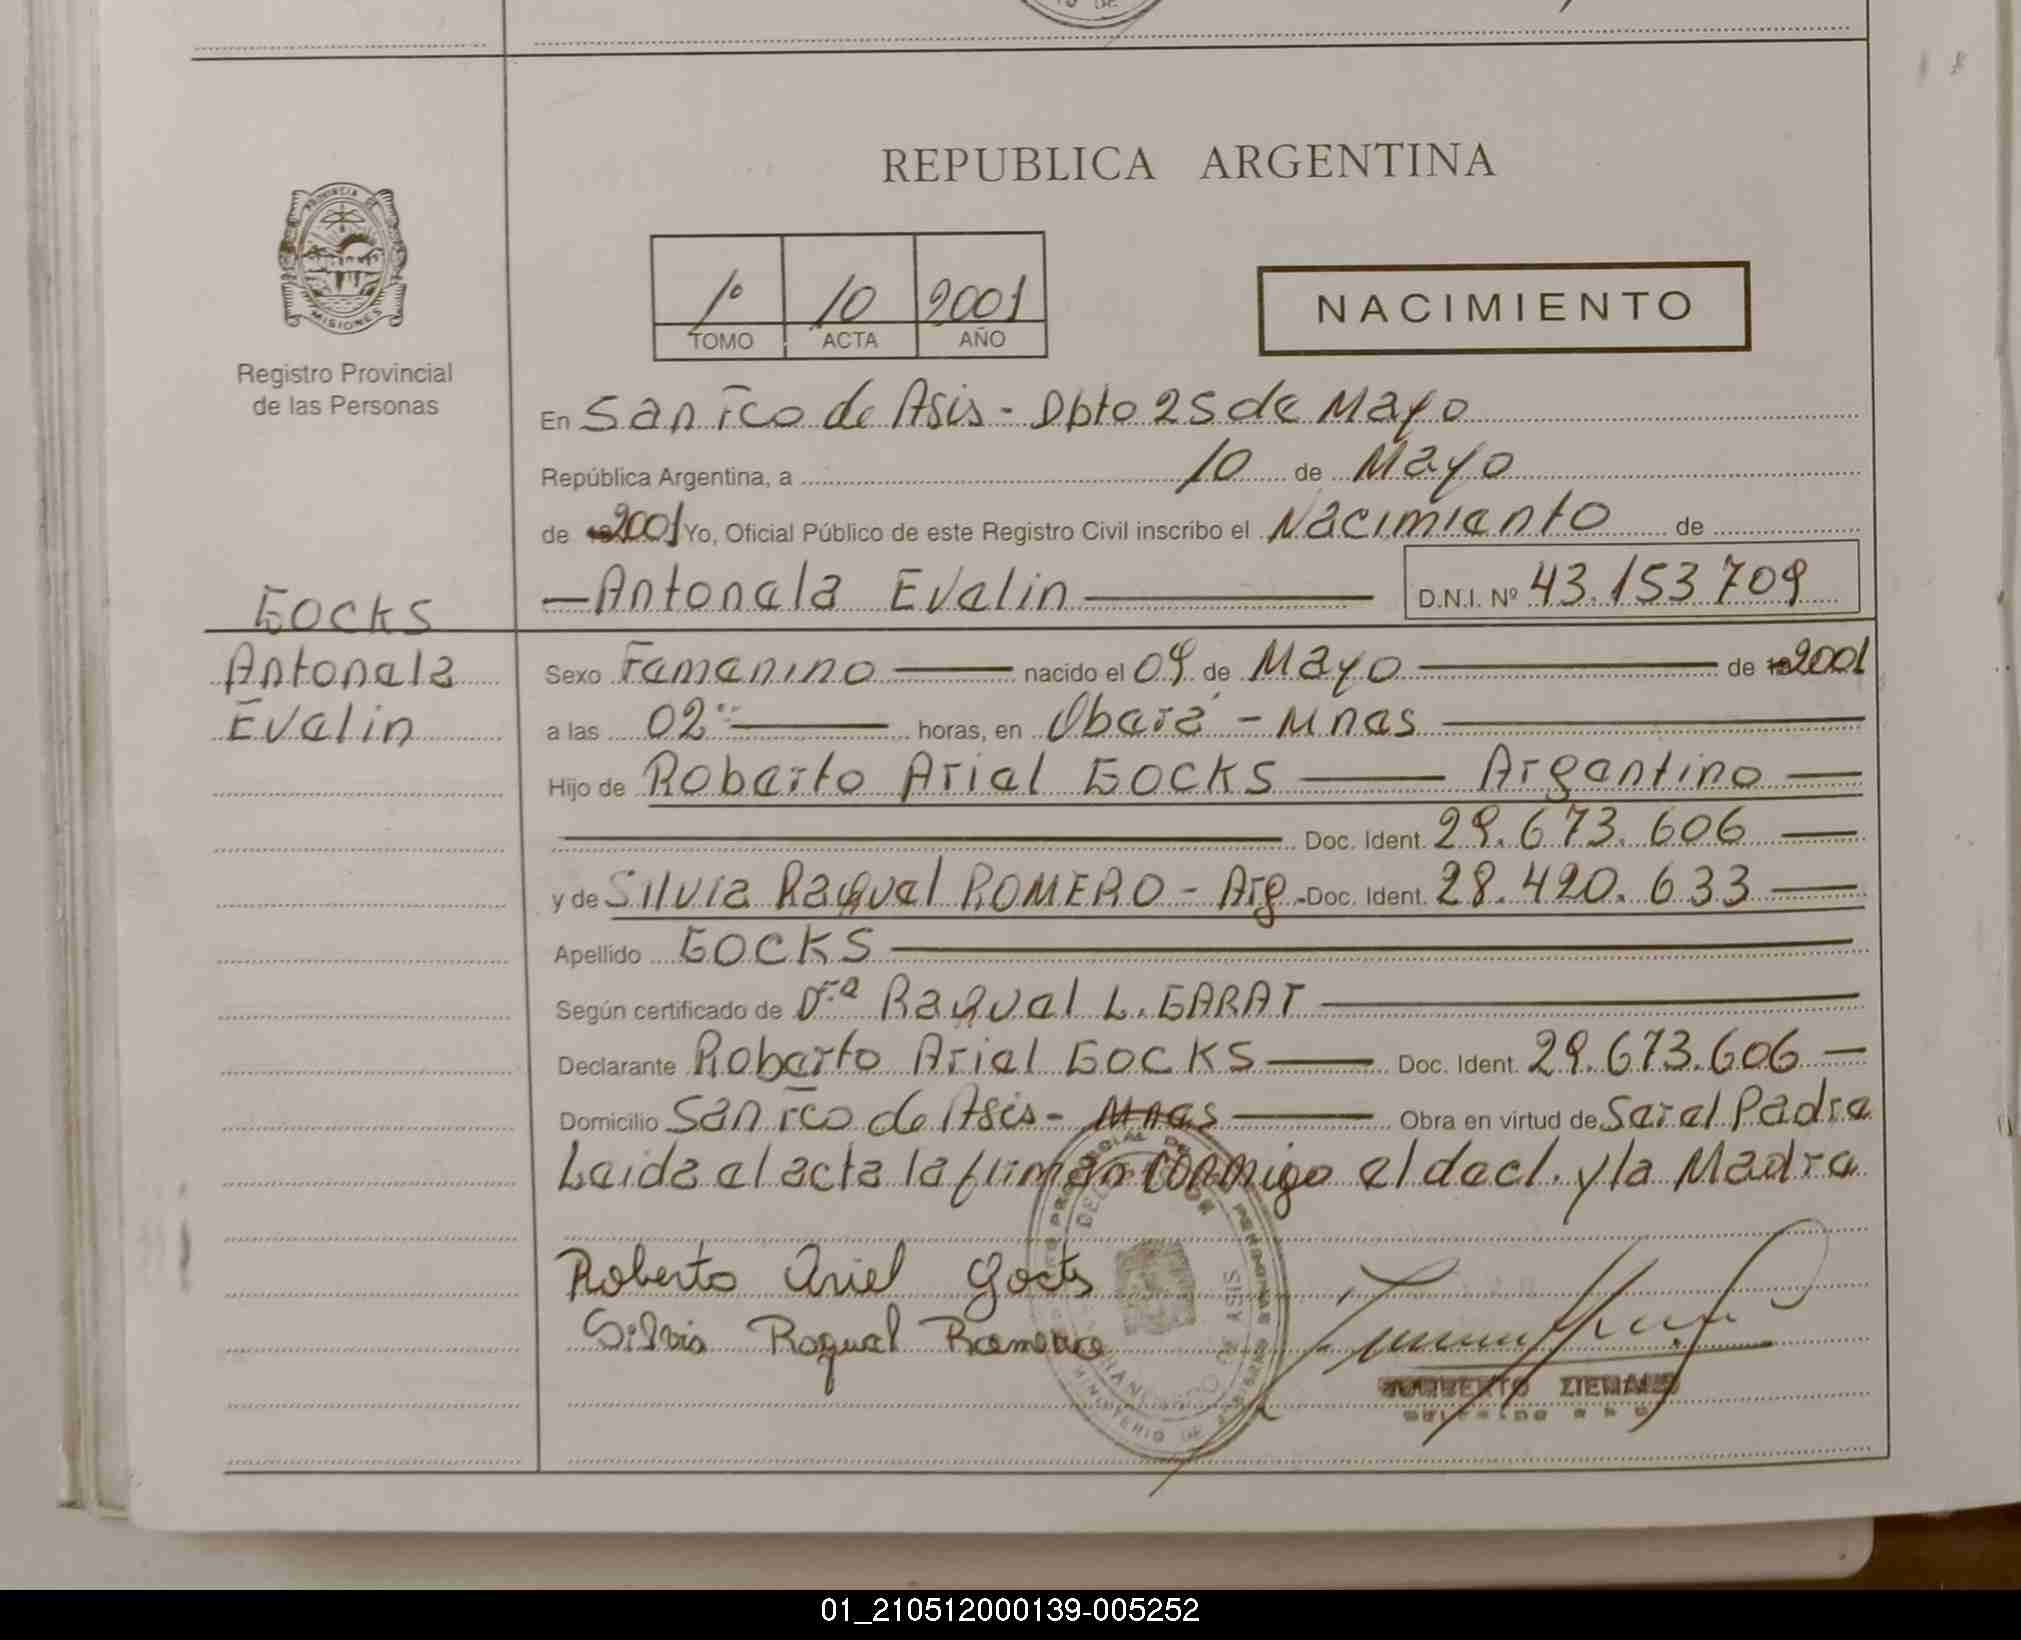 REPUBLICA ARGENTINA
PROVINCIA DE
MISIONES
Registro Provincial
de las Personas
1º 10 2001
TOMO ACTA AÑO
NACIMIENTO
En San Fco de Asis - Dpto 25 de Mayo
República Argentina, a 10 de Mayo
de 2001 Yo, Oficial Público de este Registro Civil inscribo el Nacimiento de
Antonela Evelin D.N.I. Nº 43.153.709
GOCKS
Antonela
Evelin
Sexo Femenino nacido el 09 de Mayo de 2001
a las 02 horas, en Oberá - Mnes
Hijo de Roberto Ariel GOCKS Argentino
Doc. Ident. 29.673.606
y de Silvia Raquel ROMERO - Arg - Doc. Ident. 28.420.633
Apellido GOCKS
Según certificado de Dra Raquel L. GARAT
Declarante Roberto Ariel GOCKS Doc. Ident. 29.673.606
Domicilio San Fco de Asis - Mnes Obra en virtud de Ser el Padre
Leida el acta la firman conmigo el decl. y la Madre
Roberto Ariel Gocks
Silvia Raquel Romero
MINISTERIO DE
01_210512000139-005252